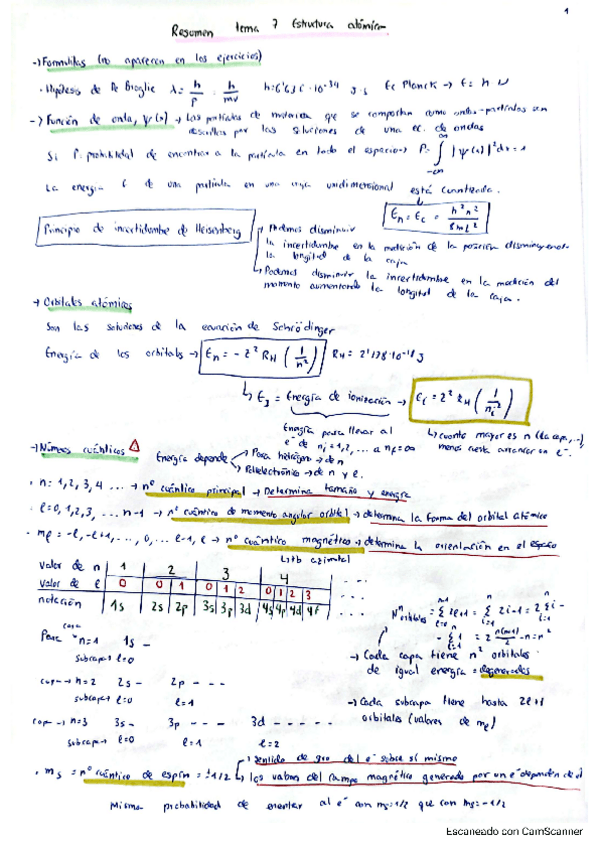 1
Resumen tema 7 Estructura atómica
→ Formulitas (no aparecen en los ejercicios)
· Hipótesis de De Broglie λ = h/p = h/mv h = 6'63 · 10⁻³⁴ J·s Ec Planck → E = h ν
→ Función de onda, ψ(x) → Las partículas de materia que se comportan como ondas-partículas son
descritas por las soluciones de una ec. de ondas
Si P. probabilidad de encontrar a la partícula en todo el espacio → P = ∫ |ψ(x)|² dx = 1
∞
-∞
La energía E de una partícula en una caja unidimensional está cuantizada.
En = Ec = h²n²/8mL²
Principio de incertidumbre de Heisenberg
Podemos disminuir
la incertidumbre en la medición de la posición disminuyendo
la longitud de la caja
Podemos disminuir la incertidumbre en la medición del
momento aumentando la longitud de la caja.
→ Orbitales atómicos
Son las soluciones de la ecuación de Schrödinger
Energía de los orbitales → En = - Z² RH (1/n²) RH = 2'178·10⁻¹⁸ J
= Energía de ionización → Ei = Z² RH (1/ni²)
Energía para llevar al
e⁻ de ni = 1,2, ... a nf = ∞
cuanto mayor es n (la capa, ...),
menos cuesta arrancar un e⁻.
→ Números cuánticos
Energía depende
Para hidrógeno → de n
Polielectrónico → de n y ℓ.
· n = 1, 2, 3, 4 ... → nº cuántico principal → Determina tamaño y energía
· ℓ = 0, 1, 2, 3, ... n-1 → nº cuántico de momento angular orbital → determina la forma del orbital atómico
· mℓ = -ℓ, -ℓ+1, ..., 0, ... ℓ-1, ℓ → nº cuántico magnético → determina la orientación en el espacio
azimutal
valor de n 1 2 3 4 ...
valor de ℓ 0 0 1 0 1 2 0 1 2 3 ...
notación 1s 2s 2p 3s 3p 3d 4s 4p 4d 4f ...
Nº orbitales = Σ 2ℓ+1 = Σ 2i-1 = 2 Σ i -
- Σ 1 = 2 n(n+1)/2 - n = n²
→ Cada capa tiene n² orbitales
de igual energía = degenerados
→ Cada subcapa tiene hasta 2ℓ+1
orbitales (valores de mℓ)
capa
Para n=1 1s -
subcapa ℓ=0
capa → n=2 2s - 2p - - -
subcapa ℓ=0 ℓ=1
capa → n=3 3s - 3p - - - 3d - - - - -
subcapa ℓ=0 ℓ=1 ℓ=2
· ms = nº cuántico de espín = ±1/2
sentido de giro del e⁻ sobre sí mismo
los valores del campo magnético generado por un e⁻ dependen de él
Misma probabilidad de encontrar al e⁻ con ms=1/2 que con ms=-1/2
Escaneado con CamScanner